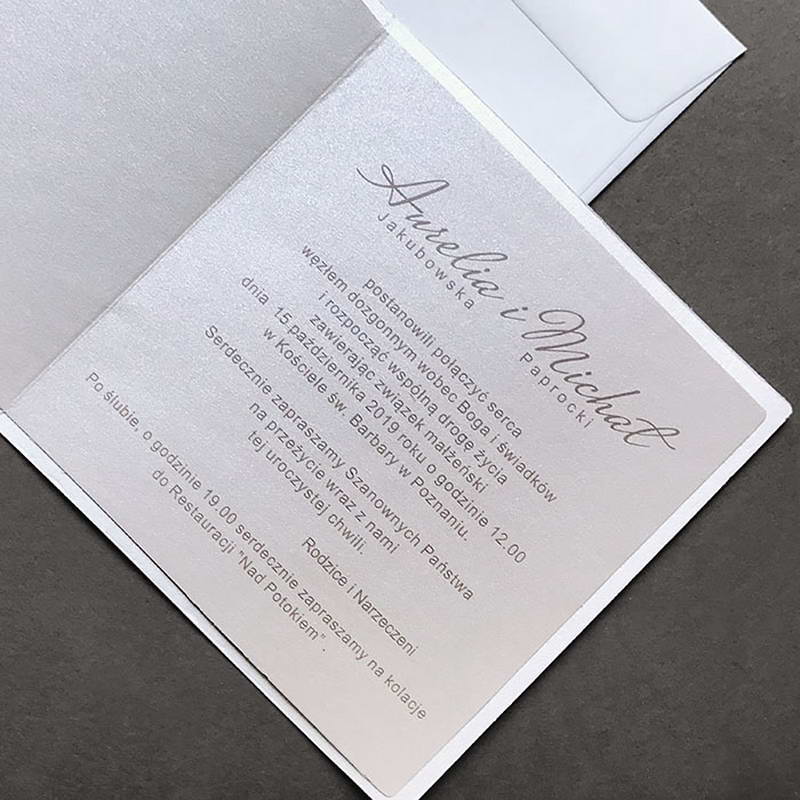 Aurelia i Michał
Jakubowska Paprocki
postanowili połączyć serca
węzłem dozgonnym wobec Boga i świadków
i rozpocząć wspólną drogę życia
zawierając związek małżeński
dnia 15 października 2019 roku o godzinie 12.00
w Kościele św. Barbary w Poznaniu.
Serdecznie zapraszamy Szanownych Państwa
na przeżycie wraz z nami
tej uroczystej chwili.
Rodzice i Narzeczeni
Po ślubie, o godzinie 19.00 serdecznie zapraszamy na kolacje
do Restauracji "Nad Potokiem".